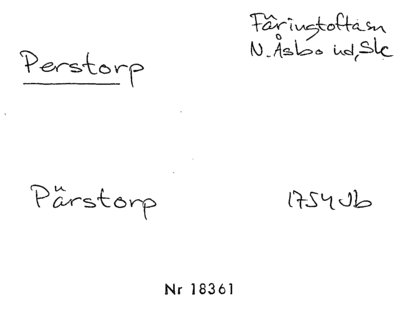 Färingtofta sn
Perstorp
N. Åsbo hd, Sk
Pärstorp
1754 Jb
Nr 18361